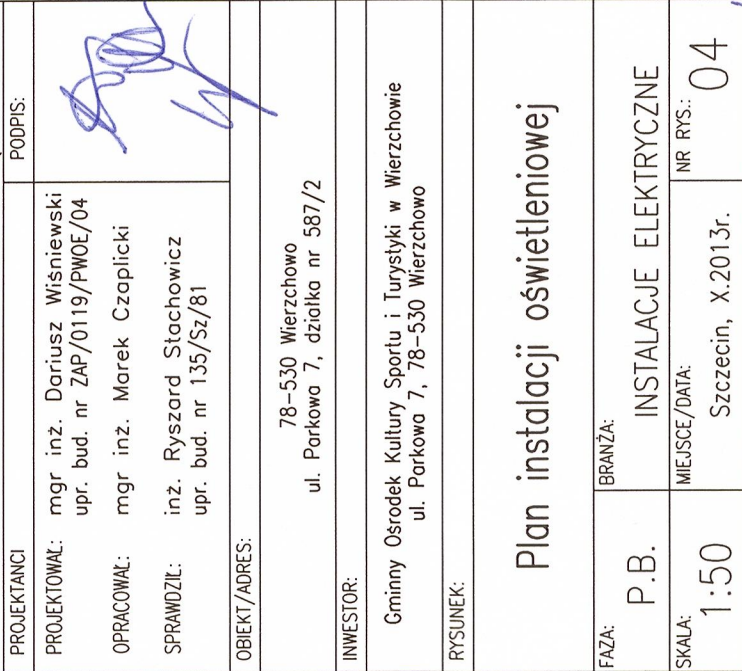 PROJEKTANCI
PODPIS:
PROJEKTOWAŁ: mgr inż. Dariusz Wiśniewski
upr. bud. nr ZAP/0119/PWOE/04
OPRACOWAŁ: mgr inż. Marek Czaplicki
SPRAWDZIŁ: inż. Ryszard Stachowicz
upr. bud. nr 135/Sz/81
OBIEKT/ADRES:
78-530 Wierzchowo
ul. Parkowa 7, działka nr 587/2
INWESTOR:
Gminny Ośrodek Kultury Sportu i Turystyki w Wierzchowie
ul. Parkowa 7, 78-530 Wierzchowo
RYSUNEK:
Plan instalacji oświetleniowej
FAZA:
P.B.
BRANŻA:
INSTALACJE ELEKTRYCZNE
SKALA:
1:50
MIEJSCE/DATA:
Szczecin, X.2013r.
NR RYS.:
04